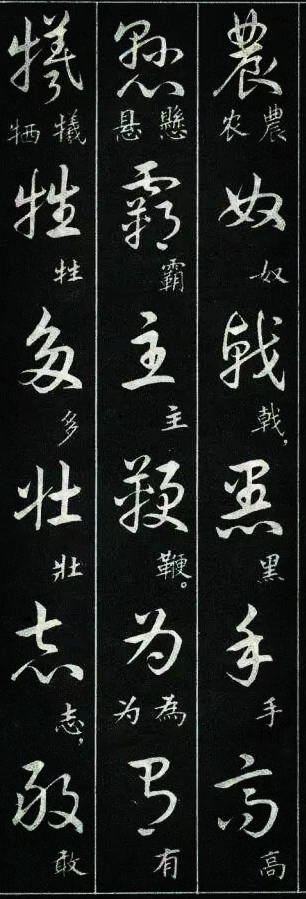 農奴戟黑手高
農农奴戟,黑手高
懸霸主鞭为有
懸悬霸主鞭。為为有
犧牲多壮志敢
犧牺牲多壯志,敢